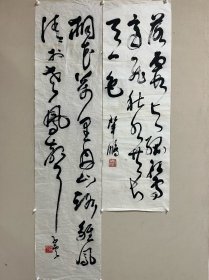 落霞与孤鹜
齐飞秋水共长
天一色
桐花万里丹山路雏凤
清于老凤声